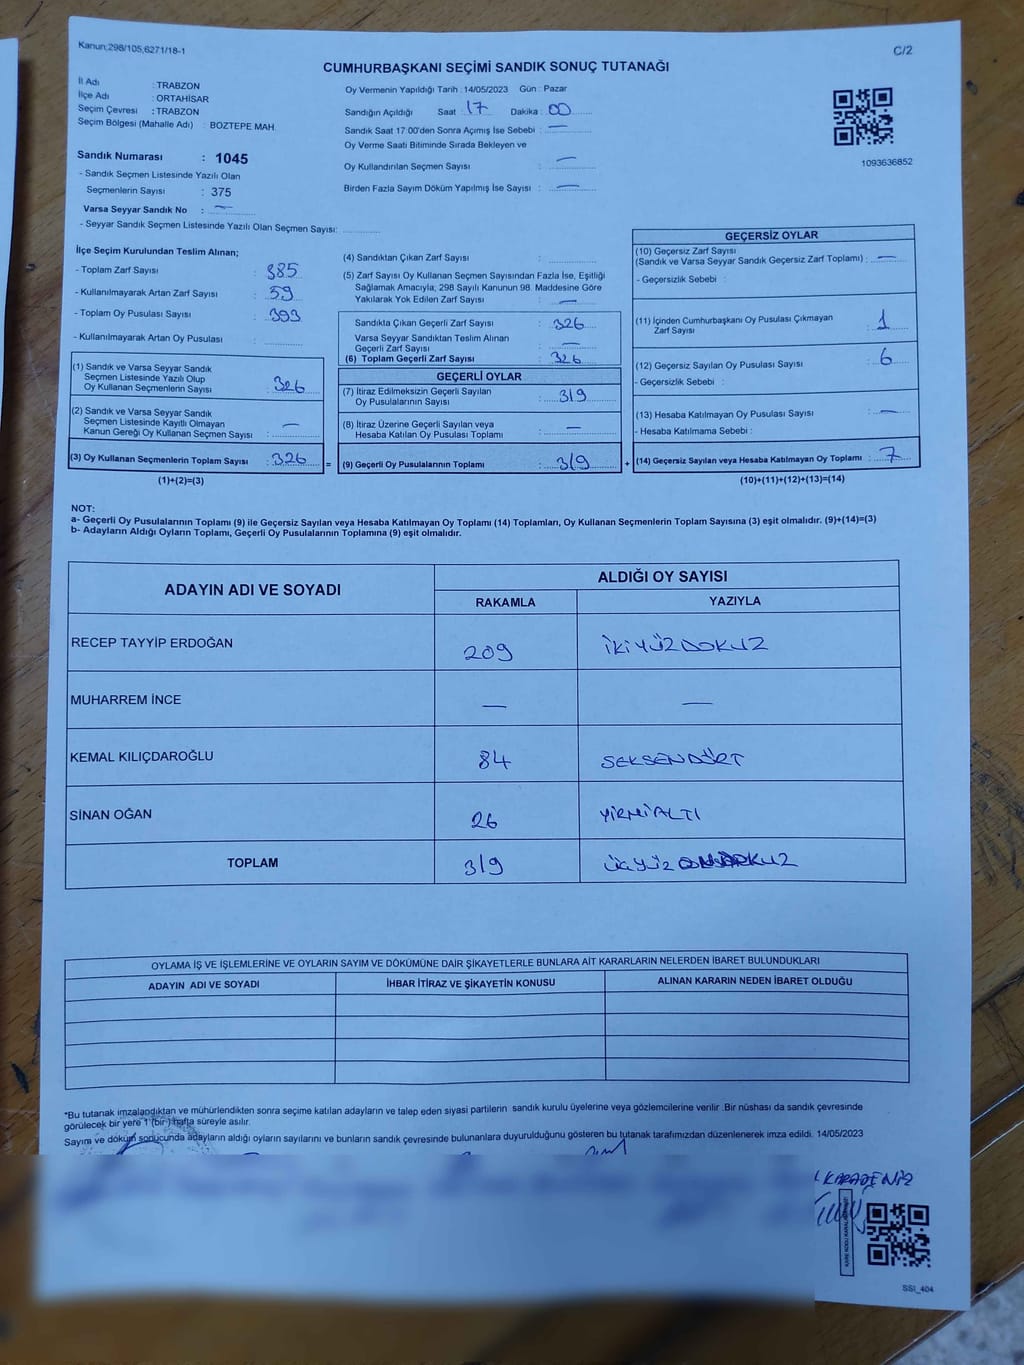 Kanun;298/105,6271/18-1
C/2
CUMHURBAŞKANI SEÇİMİ SANDIK SONUÇ TUTANAĞI
İl Adı : TRABZON
İlçe Adı : ORTAHİSAR
Seçim Çevresi : TRABZON
Seçim Bölgesi (Mahalle Adı) : BOZTEPE MAH.
Sandık Numarası : 1045
- Sandık Seçmen Listesinde Yazılı Olan
Seçmenlerin Sayısı : 375
Varsa Seyyar Sandık No : —
- Seyyar Sandık Seçmen Listesinde Yazılı Olan Seçmen Sayısı:
Oy Vermenin Yapıldığı Tarih : 14/05/2023 Gün : Pazar
Sandığın Açıldığı Saat : 17 Dakika : 00
Sandık Saat 17:00'den Sonra Açımış İse Sebebi : —
Oy Verme Saati Bitiminde Sırada Bekleyen ve
Oy Kullandırılan Seçmen Sayısı : —
Birden Fazla Sayım Döküm Yapılmış İse Sayısı : —
1093636852
İlçe Seçim Kurulundan Teslim Alınan;
- Toplam Zarf Sayısı : 385
- Kullanılmayarak Artan Zarf Sayısı : 59
- Toplam Oy Pusulası Sayısı : 393
- Kullanılmayarak Artan Oy Pusulası :
(1) Sandık ve Varsa Seyyar Sandık
Seçmen Listesinde Yazılı Olup
Oy Kullanan Seçmenlerin Sayısı : 326
(2) Sandık ve Varsa Seyyar Sandık
Seçmen Listesinde Kayıtlı Olmayan
Kanun Gereği Oy Kullanan Seçmen Sayısı : —
(3) Oy Kullanan Seçmenlerin Toplam Sayısı : 326 =
(1)+(2)=(3)
(4) Sandıktan Çıkan Zarf Sayısı :
(5) Zarf Sayısı Oy Kullanan Seçmen Sayısından Fazla İse, Eşitliği
Sağlamak Amacıyla; 298 Sayılı Kanunun 98. Maddesine Göre
Yakılarak Yok Edilen Zarf Sayısı : —
Sandıkta Çıkan Geçerli Zarf Sayısı : 326
Varsa Seyyar Sandıktan Teslim Alınan
Geçerli Zarf Sayısı : —
(6) Toplam Geçerli Zarf Sayısı : 326
GEÇERLİ OYLAR
(7) İtiraz Edilmeksizin Geçerli Sayılan
Oy Pusulalarının Sayısı : 319
(8) İtiraz Üzerine Geçerli Sayılan veya
Hesaba Katılan Oy Pusulası Toplamı : —
(9) Geçerli Oy Pusulalarının Toplamı : 319 +
GEÇERSİZ OYLAR
(10) Geçersiz Zarf Sayısı
(Sandık ve Varsa Seyyar Sandık Geçersiz Zarf Toplamı) : —
- Geçersizlik Sebebi :
(11) İçinden Cumhurbaşkanı Oy Pusulası Çıkmayan
Zarf Sayısı : 1
(12) Geçersiz Sayılan Oy Pusulası Sayısı : 6
- Geçersizlik Sebebi :
(13) Hesaba Katılmayan Oy Pusulası Sayısı : —
- Hesaba Katılmama Sebebi :
(14) Geçersiz Sayılan veya Hesaba Katılmayan Oy Toplamı : 7
(10)+(11)+(12)+(13)=(14)
NOT:
a- Geçerli Oy Pusulalarının Toplamı (9) ile Geçersiz Sayılan veya Hesaba Katılmayan Oy Toplamı (14) Toplamları, Oy Kullanan Seçmenlerin Toplam Sayısına (3) eşit olmalıdır. (9)+(14)=(3)
b- Adayların Aldığı Oyların Toplamı, Geçerli Oy Pusulalarının Toplamına (9) eşit olmalıdır.
ADAYIN ADI VE SOYADI
ALDIĞI OY SAYISI
RAKAMLA YAZIYLA
RECEP TAYYİP ERDOĞAN 209 İKİYÜZDOKUZ
MUHARREM İNCE — —
KEMAL KILIÇDAROĞLU 84 SEKSENDÖRT
SİNAN OĞAN 26 YİRMİALTI
TOPLAM 319 ÜÇYÜZ
OYLAMA İŞ VE İŞLEMLERİNE VE OYLARIN SAYIM VE DÖKÜMÜNE DAİR ŞİKAYETLERLE BUNLARA AİT KARARLARIN NELERDEN İBARET BULUNDUKLARI
ADAYIN ADI VE SOYADI İHBAR İTİRAZ VE ŞİKAYETİN KONUSU ALINAN KARARIN NEDEN İBARET OLDUĞU
*Bu tutanak imzalandıktan ve mühürlendikten sonra seçime katılan adayların ve talep eden siyasi partilerin sandık kurulu üyelerine veya gözlemcilerine verilir .Bir nüshası da sandık çevresinde
görülecek bir yere 1 (bir) hafta süreyle asılır.
Sayım ve döküm sonucunda adayların aldığı oyların sayılarını ve bunların sandık çevresinde bulunanlara duyurulduğunu gösteren bu tutanak tarafımızdan düzenlenerek imza edildi. 14/05/2023
KARADENİZ
SSI_404